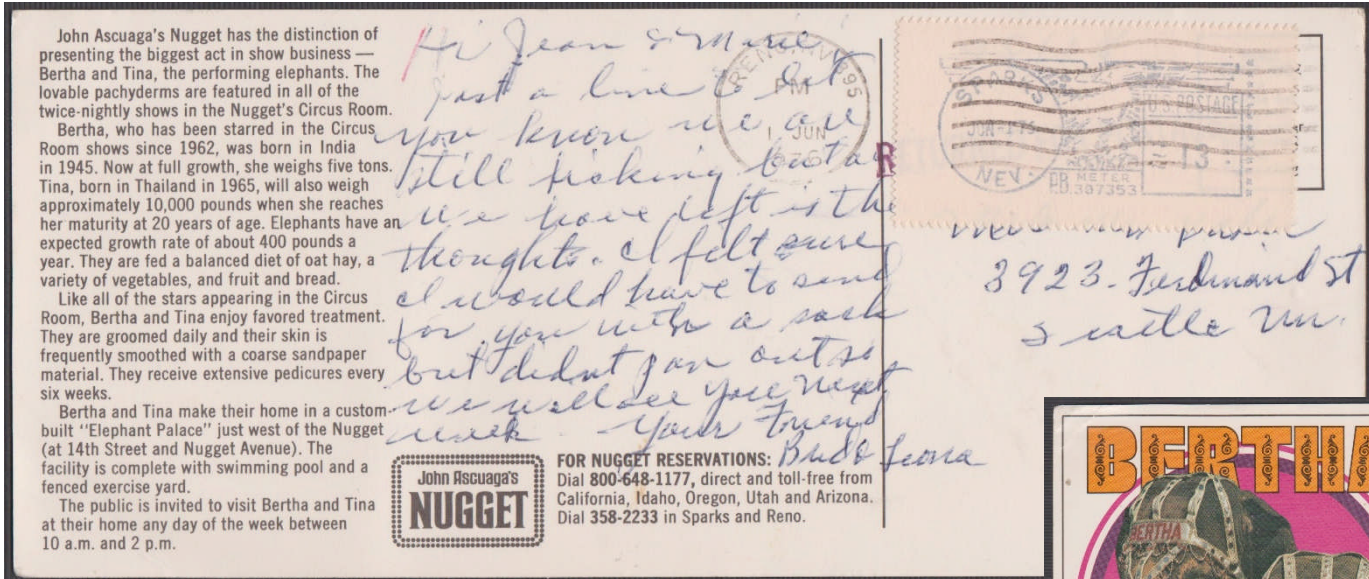 John Ascuaga's Nugget has the distinction of
presenting the biggest act in show business —
Bertha and Tina, the performing elephants. The
lovable pachyderms are featured in all of the
twice-nightly shows in the Nugget's Circus Room.
Bertha, who has been starred in the Circus
Room shows since 1962, was born in India
in 1945. Now at full growth, she weighs five tons.
Tina, born in Thailand in 1965, will also weigh
approximately 10,000 pounds when she reaches
her maturity at 20 years of age. Elephants have an
expected growth rate of about 400 pounds a
year. They are fed a balanced diet of oat hay, a
variety of vegetables, and fruit and bread.
Like all of the stars appearing in the Circus
Room, Bertha and Tina enjoy favored treatment.
They are groomed daily and their skin is
frequently smoothed with a coarse sandpaper
material. They receive extensive pedicures every
six weeks.
Bertha and Tina make their home in a custom-
built "Elephant Palace" just west of the Nugget
(at 14th Street and Nugget Avenue). The
facility is complete with swimming pool and a
fenced exercise yard.
The public is invited to visit Bertha and Tina
at their home any day of the week between
10 a.m. and 2 p.m.
Hi Jean &
Just a line to let
you know we are
still kicking but all
we have left is the
thoughts. I felt sure
I would have to send
for you with a sack
but didnt pan out so
we will see you next
week. Your Friend
Leona
John Ascuaga's
NUGGET
FOR NUGGET RESERVATIONS:
Dial 800-648-1177, direct and toll-free from
California, Idaho, Oregon, Utah and Arizona.
Dial 358-2233 in Sparks and Reno.
RENO, NV 895
PM
1 JUN
SPARKS
JUN-1
NEV.
U.S. POSTAGE
13
P.B. METER
307353
3923. Ferdinand St
Seattle Wn.
BERTHA
BERTHA